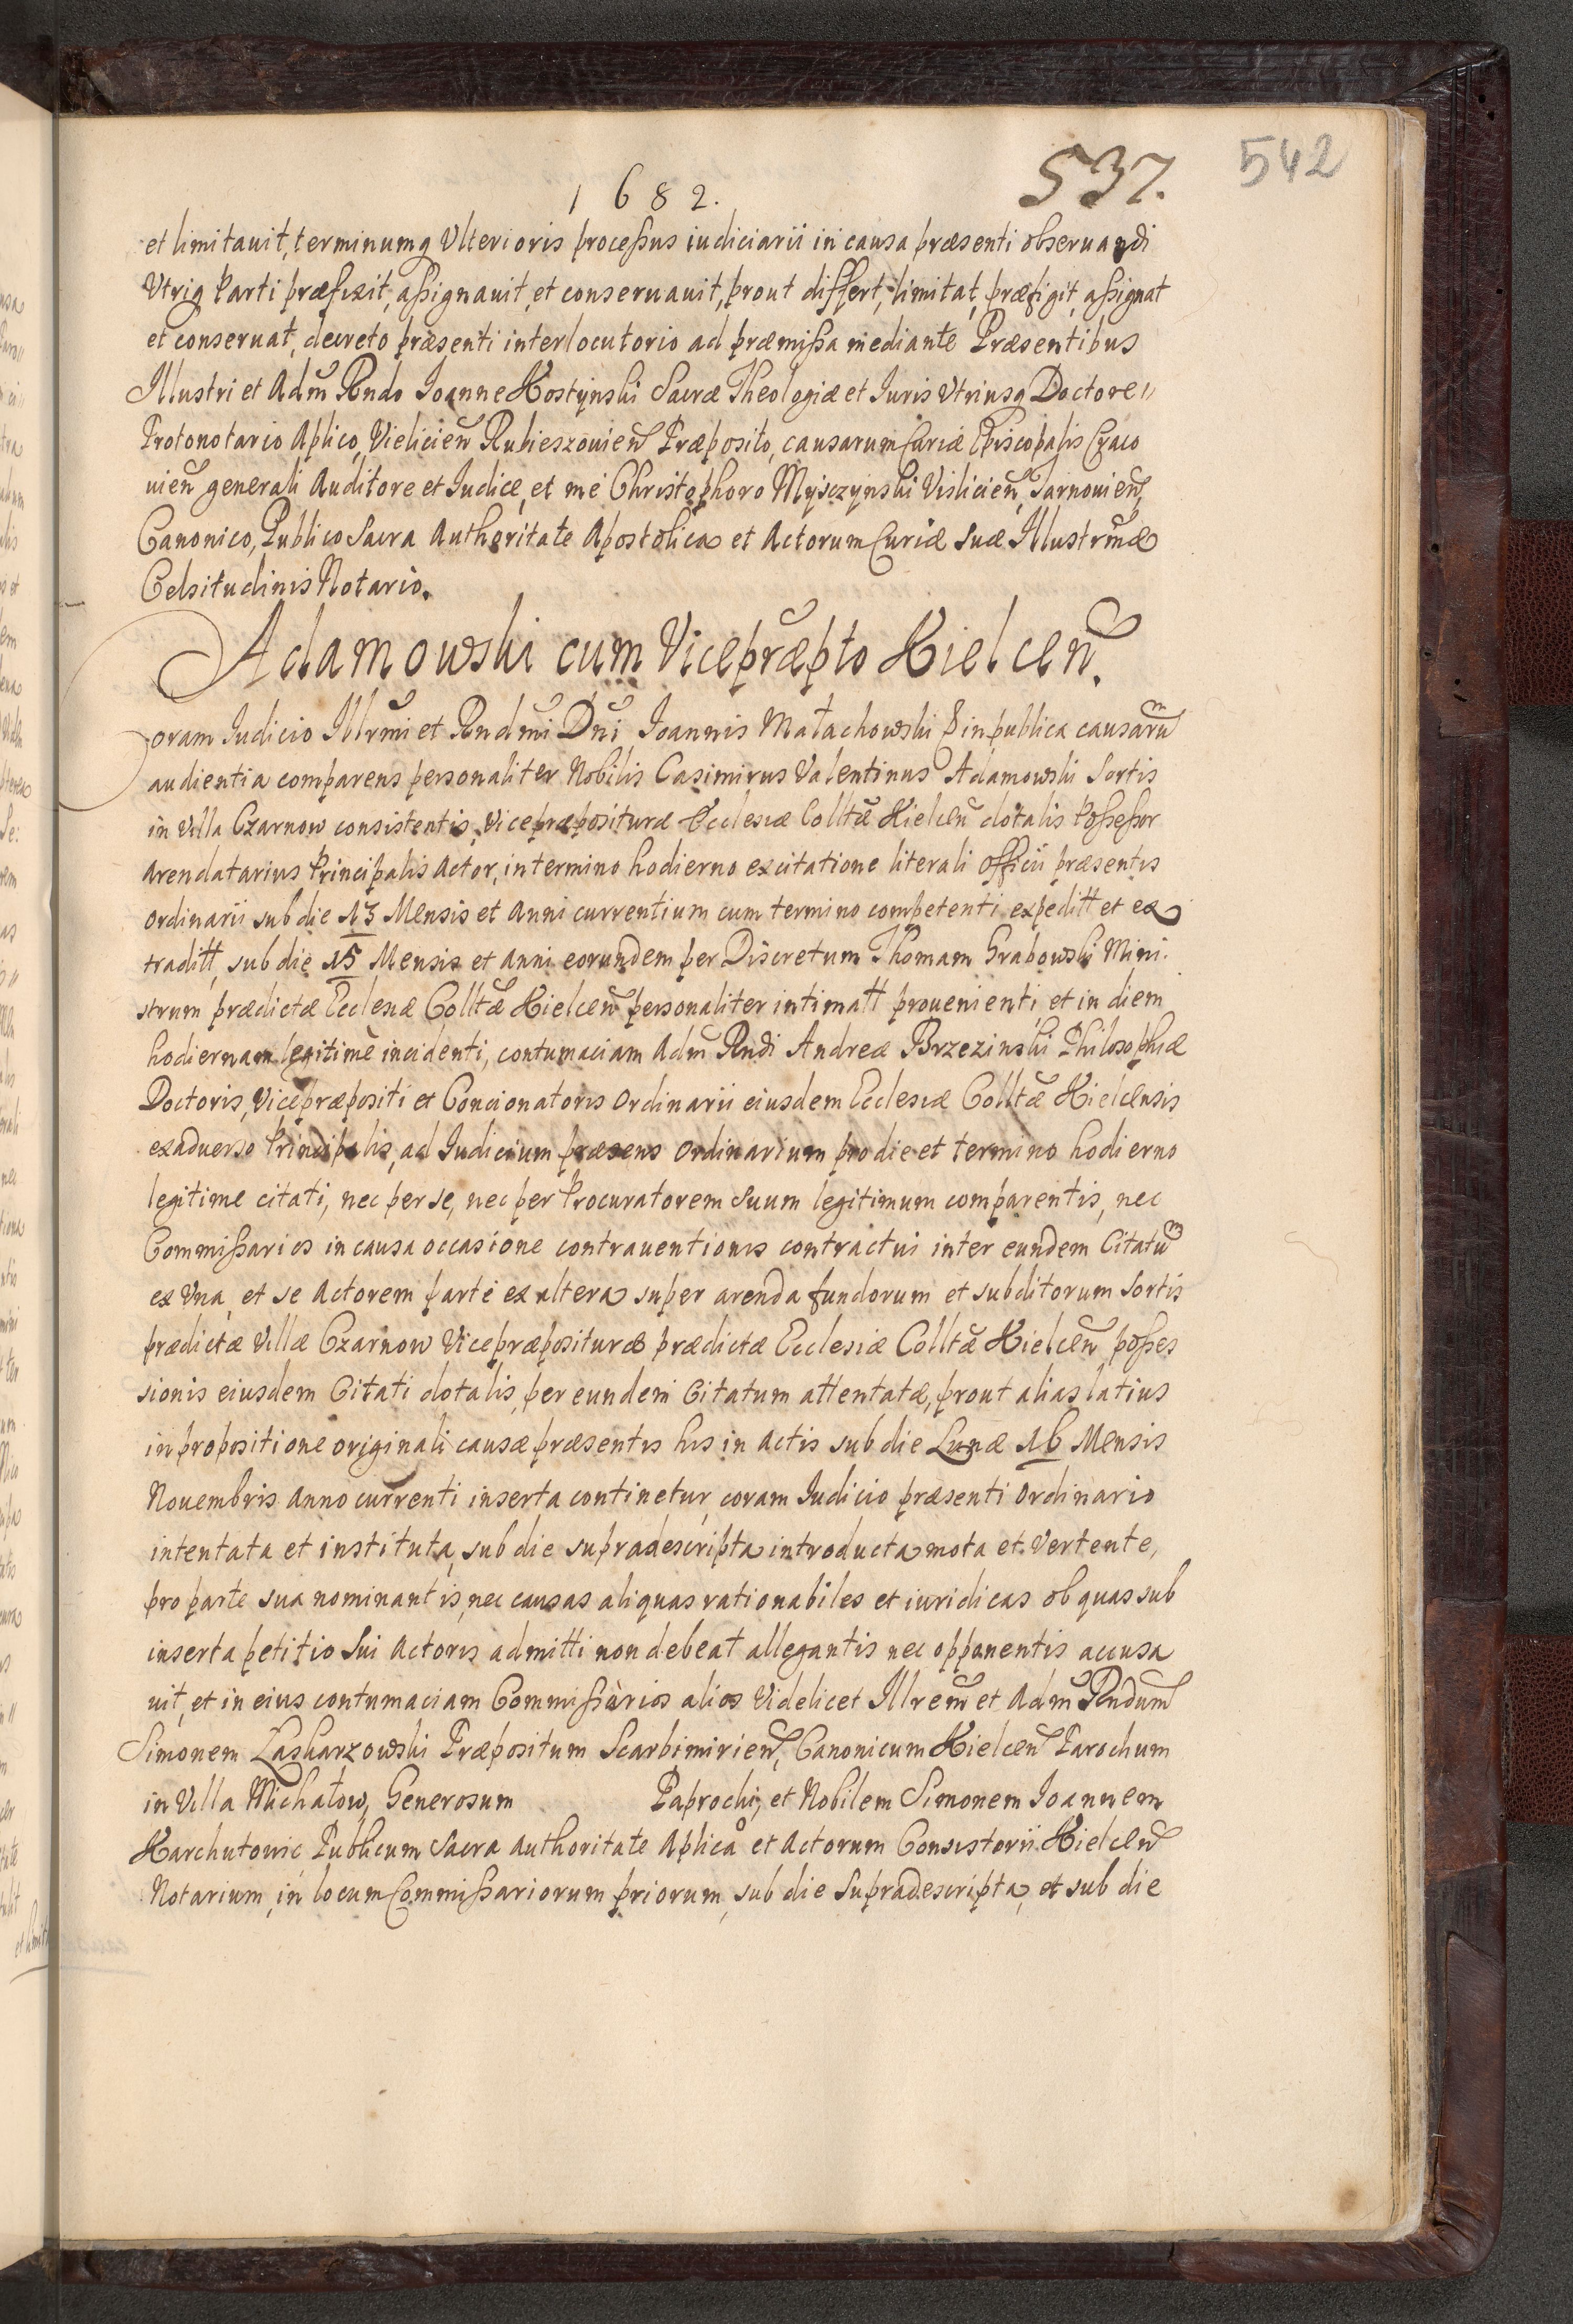 1682.
537.
542
et limitauit, terminumq Vlterioris processus iudiciarii in causa præsenti obseruandi
Vtriq Parti præfixit, assignauit, et conseruauit, prout differt, limitat, præfigit, assignat
et conseruat, decreto præsenti interlocutorio ad præmissa mediante Præsentibus
Illustri et Adm̃ Rndo Ioanne Kostynski Sacræ Theologiæ et Iuris Vtriusq Doctore"
Protonotario Aplico, Vielicien̄ Rubieszouien̄ Præposito, causarum Curiæ Episcopalis Craco
uien̄ generali Auditore et Iudice, et me Christophoro Myszynski Vislicien̄, Tarnouien̄,
Canonico, Publico Sacra Authoritate Apostolica et Actorum Curiæ Suæ Illustrm̃æ
Celsitudinis Notario.
Adamowski cum Vicepræpto Kielcen̄.
Coram Iudicio Illrm̃i et Rndm̃i Dn̄i Ioannis Małachowski & in publica causarum
audientia comparens personaliter Nobilis Casimirus Valentinus Adamowski Sortis
in Villa Czarnow consistentis, Vicepræposituræ Ecclesiæ Colltæ̃ Kielcen̄ dotalis Possessor
Arendatarius Principalis Actor, in termino hodierno ex citatione literali Officii præsentis
Ordinarii sub die 13 Mensis et Anni currentium cum termino competenti expeditt et ex
traditt, sub die 15 Mensis et Anni eorundem per Discretum Thomam Grabowski Mini-
strum prædictæ Ecclesiæ Colltæ̃ Kielcen̄ personaliter intimatt prouenienti, et in diem
hodiernam legitimè incidenti, contumaciam Adm̃ Rndi Andreæ Brzezinski Philosophiæ
Doctoris, Vicepræpositi et Concionatoris Ordinarii eiusdem Ecclesiæ Colltæ̃ Kielcensis
ex aduerso Principalis, ad Iudicium præsens Ordinarium pro die et termino hodierno
legitime citati, nec per se, nec per Procuratorem Suum legitimum comparentis, nec
Commissarios in causa occasione contrauentionis contractui inter eundem Citatum
ex Vna, et se Actorem parte ex altera super arenda fundorum et subditorum Sortis
prædictæ Villæ Czarnow Vicepræposituræ prædictæ Ecclesiæ Colltæ̃ Kielcen̄ posses
sionis eiusdem Citati dotalis, per eundem Citatum attentatæ, prout alias latius
in propositione originali causæ præsentis his in Actis sub die Lunæ 16 Mensis
Nouembris Anno currenti inserta continetur, coram Iudicio præsenti Ordinario
intentata et instituta, sub die supradescripta introducta mota et Vertente,
pro parte sua nominantis, nec causas aliquas rationabiles et iuridicas ob quas sub
inserta petitio Sui Actoris admitti non debeat allegantis nec opponentis accusa
uit, et in eius contumaciam Commissàrios alios Videlicet Illrem̃ et Adm̃ Rndum̃
Simonem Laskarzowski Præpositum Scarbimirien̄, Canonicum Kielcen̄ Parochum
in Villa Michałow, Generosum Paprocki, et Nobilem Simonem Ioannem
Karchutowic Publicum Sacra Authoritate Aplicâ et Actorum Consistorii Kielcen̄
Notarium, in locum Commissariorum priorum, sub die Supradescripta, et sub die